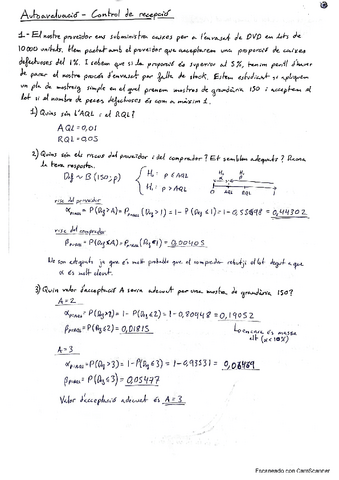 Autoavaluació - Control de recepció
1- El nostre proveidor ens subministra caixes per a l'envasat de DVD en lots de
10000 unitats. Hem pactat amb el proveidor que acceptarem una proporció de caixes
defectuoses del 1%. I sabem que si la proporció és superior al 5%, tenim perill d'haver
de parar el nostre procés d'envasat per falta de stock. Estem estudiant si apliquem
un pla de mostreig simple en el qual prenem mostres de grandària 150 i acceptem el
lot si el nombre de peces defectuoses és com a màxim 1.
1) Quins són l'AQL i el RQL?
AQL = 0,01
RQL = 0,05
2) Quins són els riscos del proveidor i del comprador? Et semblen adequats? Raona
la teva resposta.
Def ~ B(150; p) H₀: p ≤ AQL
H₁: p > AQL
0 AQL RQL 1
risc del proveidor
= P(Def > A) = (Def > 1) = 1 - P(Def ≤ 1) = 1 - 0,55698 = 0,44302
risc del comprador
= P(Def ≤ A) = (Def ≤ 1) = 0,00405
No són adequats ja que és molt probable que el comprador rebutji el lot degut a que
α és molt elevat.
3) Quin valor d'acceptació A seria adequat per una mostra de grandària 150?
A = 2
= P(Def > 2) = 1 - P(Def ≤ 2) = 1 - 0,80948 = 0,19052
= P(Def ≤ 2) = 0,01815 encara és massa
alt (α < 10%)
A = 3
= P(Def > 3) = 1 - P(Def ≤ 3) = 1 - 0,93531 = 0,06469
= P(Def ≤ 3) = 0,05477
Valor d'acceptació adequat és A = 3
Escaneado con CamScanner